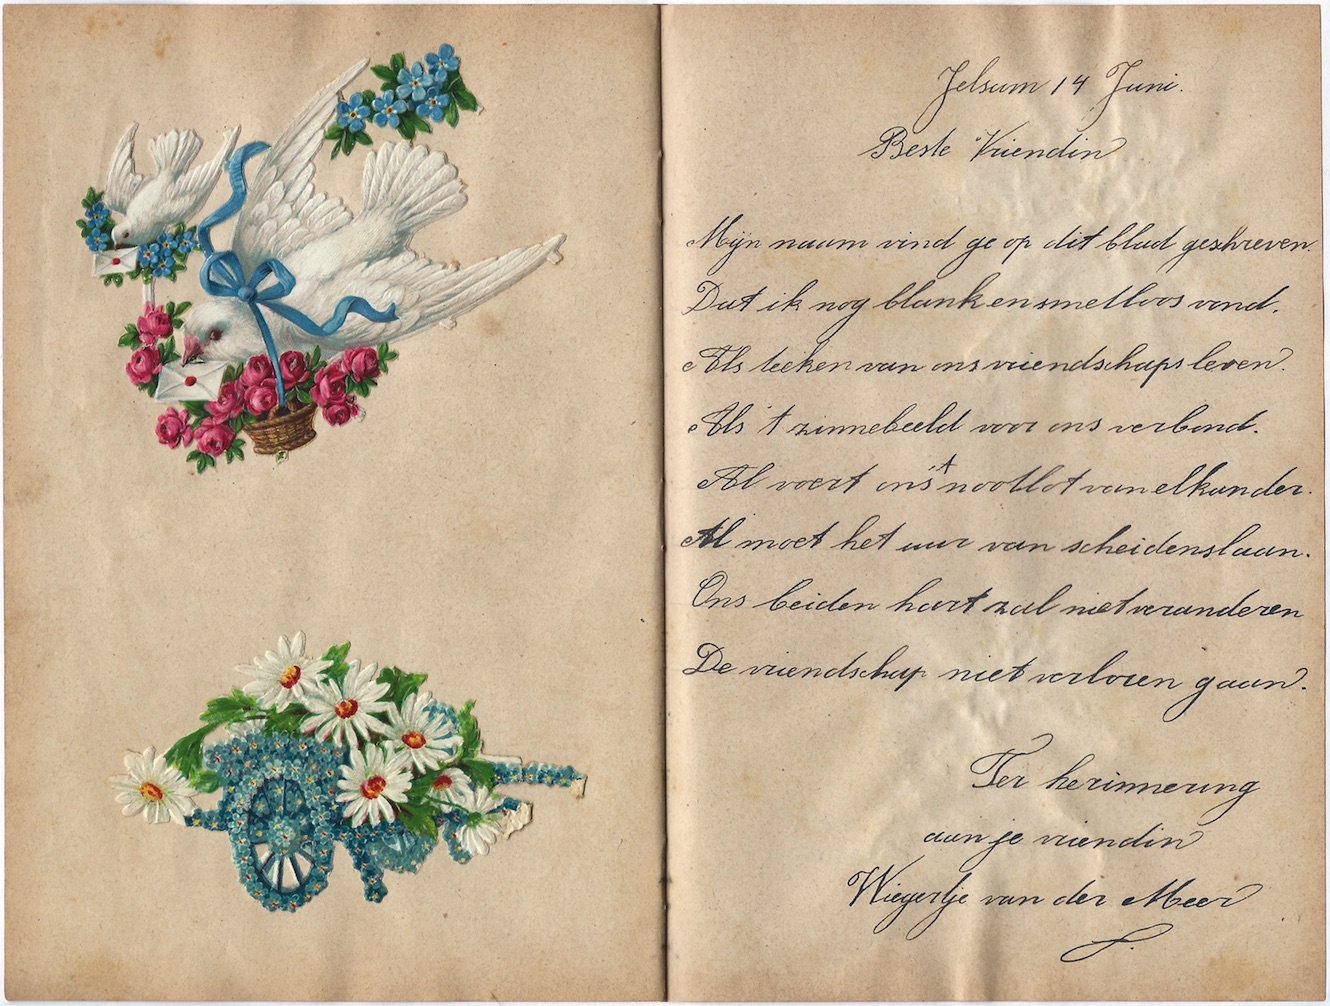 Jelsum 14 Juni.
Beste Vriendin
Mijn naam vind ge op dit blad geschreven.
Dat ik nog blank en smetloos vond.
Als teeken van ons vriendschapsleven.
Als 't zinnebeeld voor ons verbond.
Al voert ons 't nootlot van elkander.
Al moet het uur van scheiden slaan.
Ons beiden hart zal niet veranderen
De vriendschap niet verloren gaan.
Ter herinnering
aan je vriendin
Wiegertje van der Meer